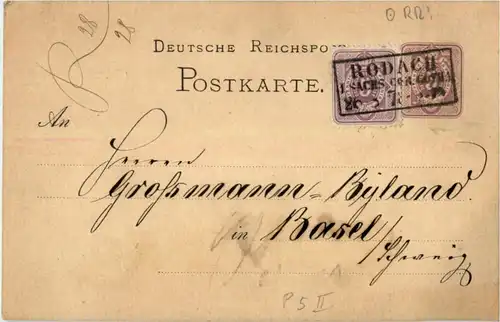 ⊙ RR!
R 28
28
DEUTSCHE REICHSPOST
POSTKARTE.
RODACH
I. SACHS. COB. GOTHA
An
Herren
Grossmann=Byland
in Basel/
Schweiz
P 5 II